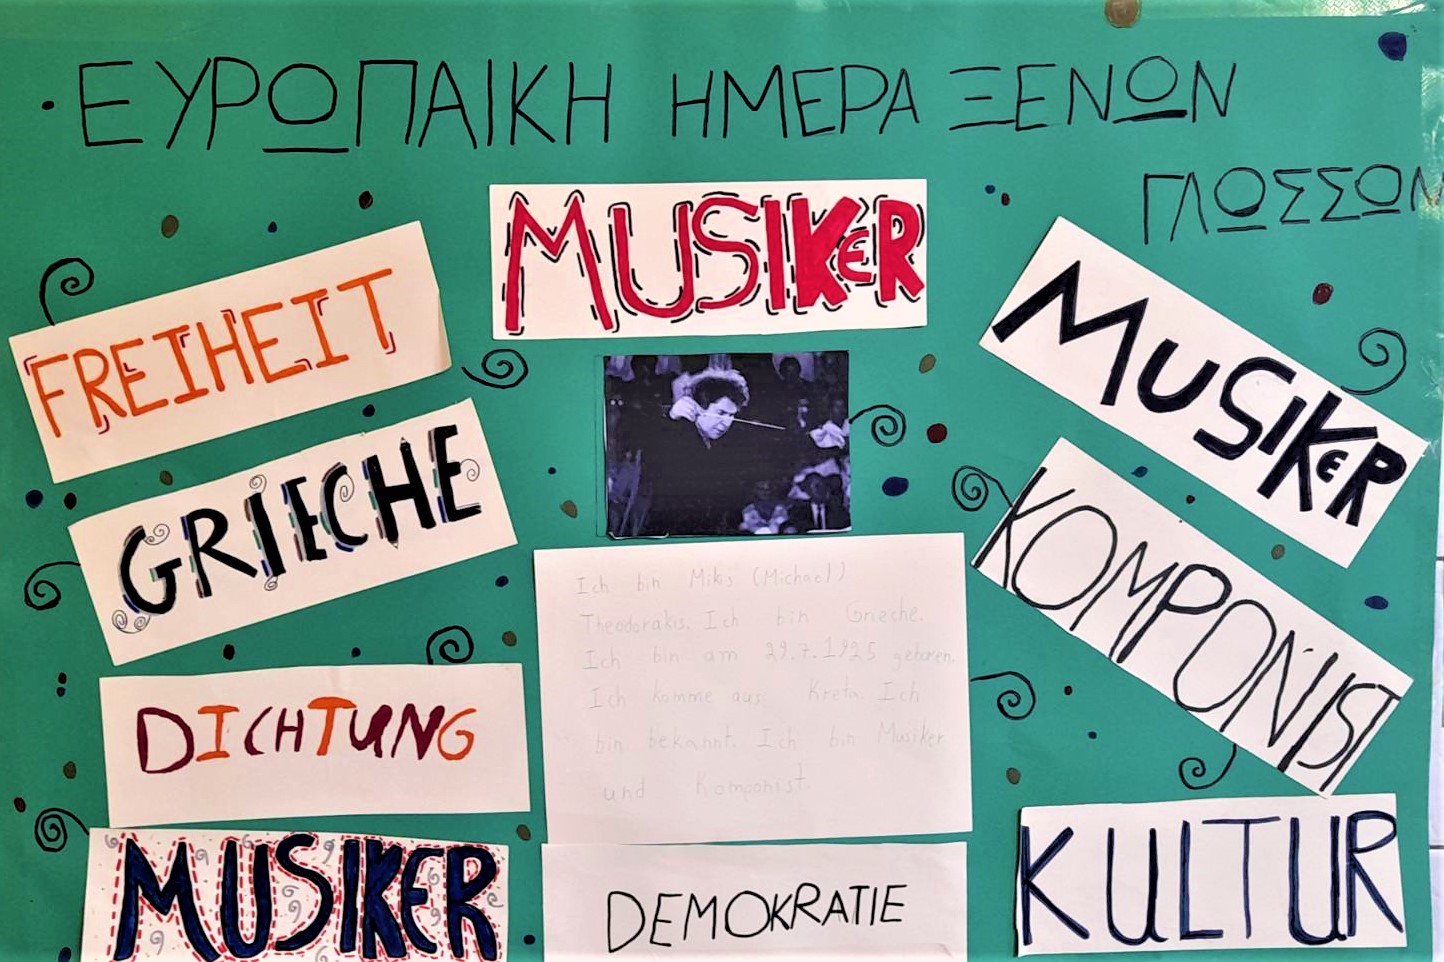 ΕΥΡΩΠΑΙΚΗ ΗΜΕΡΑ ΞΕΝΩΝ
ΓΛΩΣΣΩΝ
MUSIKER
FREIHEIT
MUSIKER
GRIECHE
KOMPONIST
Ich bin Mikis (Michael)
Theodorakis. Ich bin Grieche.
Ich bin am 29.7.1925 geboren.
Ich komme aus Kreta Ich
bin bekannt. Ich bin Musiker
und Komponist.
DICHTUNG
KULTUR
MUSIKER
DEMOKRATIE